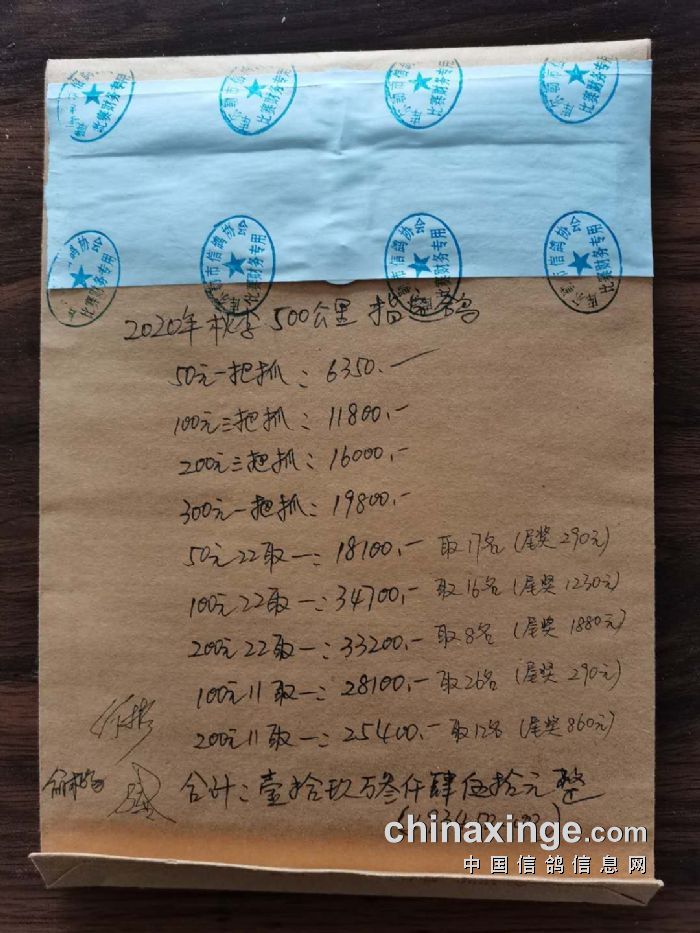 市信鸽协会
比赛财务专用
2020年秋季500公里指定鸽
50元一把抓：6350.—
100元三把抓：11800.—
200元三把抓：16000.—
300元一把抓：19800.—
50元22取一：18100.— 取17名（尾奖290元）
100元22取一：34700.— 取16名（尾奖1230元）
200元22取一：33200.— 取8名（尾奖1880元）
100元11取一：28100.— 取26名（尾奖290元）
200元11取一：25400.— 取12名（尾奖860元）
合计：壹拾玖万叁仟肆伍拾元整
chinaxinge.com
中国信鸽信息网